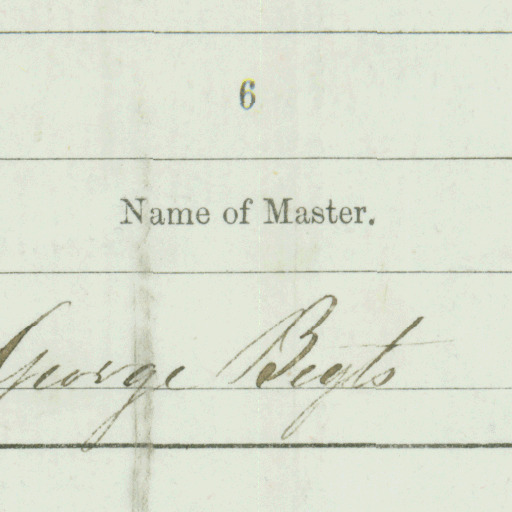 6
Name of Master.
George Begts